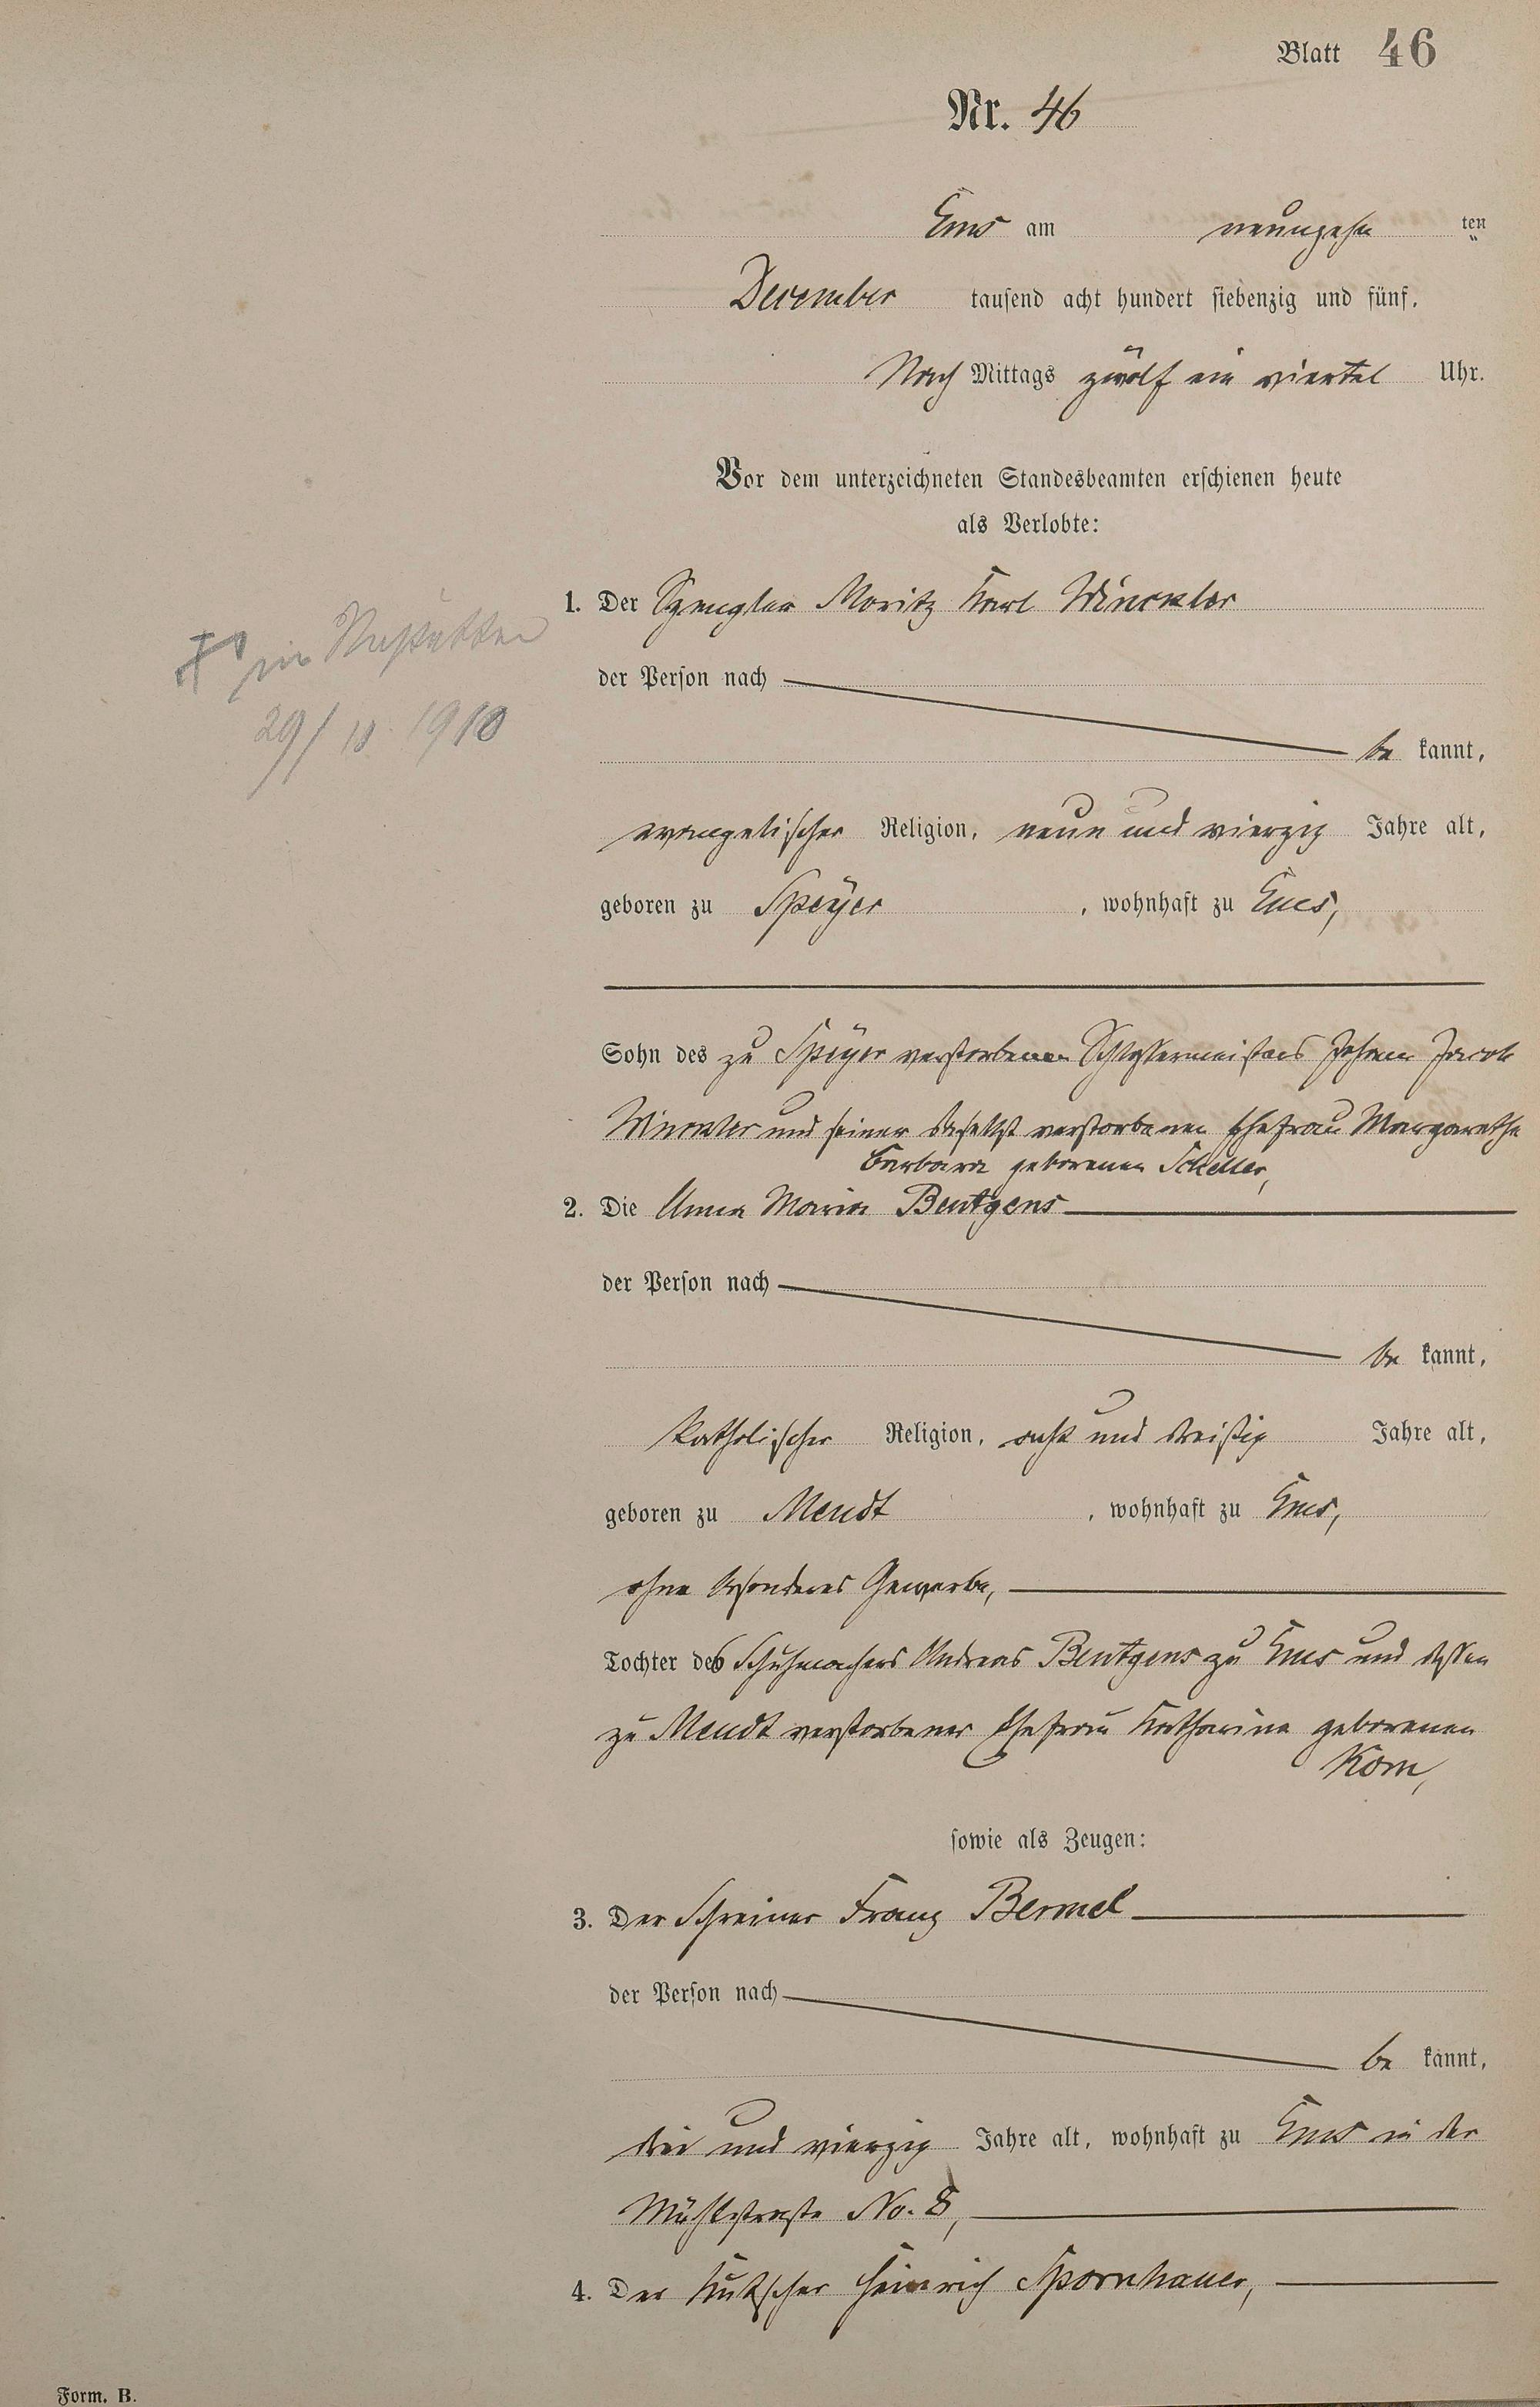 Blatt 46
Nr. 46
Ems am neunzehn ten
December tausend acht hundert siebenzig und fünf.
Nach Mittags zwölf ein viertel Uhr.
Vor dem unterzeichneten Standesbeamten erschienen heute
als Verlobte:
1. Der Spengler Moritz Karl Winckler
der Person nach
be kannt,
evangelischer Religion, neun und vierzig Jahre alt,
geboren zu Speyer, wohnhaft zu Ems,
Sohn des zu Speyer verstorbenen Schlossermeisters Johann Jacob
Winckler und seiner daselbst verstorbenen Ehefrau Margarethe
Barbara geborenen Scheller,
2. Die Anna Maria Bentgens
der Person nach
be kannt,
katholischer Religion, acht und dreißig Jahre alt,
geboren zu Meudt, wohnhaft zu Ems,
ohne besonderes Gewerbe,
Tochter des Schuhmachers Andreas Bentgens zu Ems und dessen
zu Meudt verstorbener Ehefrau Katharina geborenen
Korn,
sowie als Zeugen:
3. Der Schreiner Franz Bermel
der Person nach
be kannt,
drei und vierzig Jahre alt, wohnhaft zu Ems in der
Mühlstraße No. 8,
4. Der Kutscher Heinrich Spornhauer,
in Nastätten
29/10 1910
Form. B.